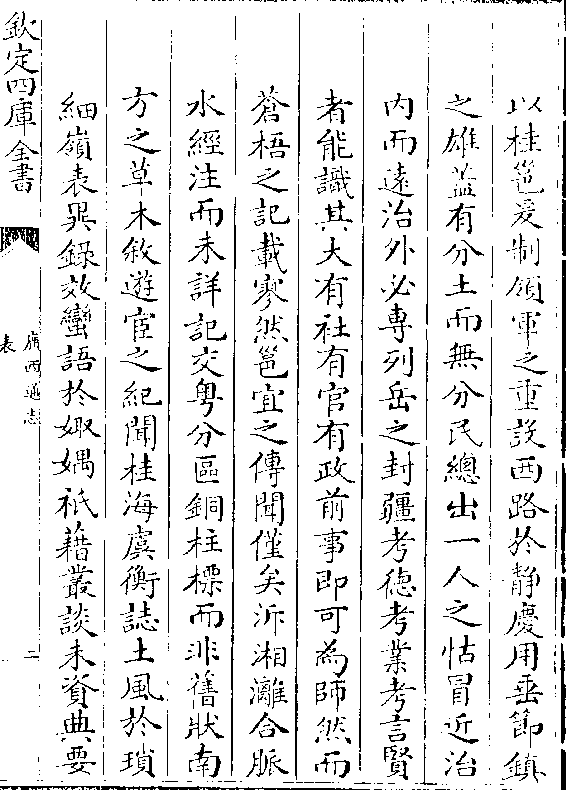 以桂邕爰制領軍之重設西路於静慶用垂節鎮
之雄葢有分土而無分民總出一人之怙冒近治
内而逺治外必專列岳之封疆考徳考業考言賢
者能識其大有社有官有政前事即可為師然而
蒼梧之記載寥然邕宜之傳聞僅矣泝湘灕合脈
水經注而未詳記交粤分區銅柱標而非舊狀南
方之草木敘遊宦之紀聞桂海虞衡誌土風於瑣
細嶺表異錄效蠻語於娵嵎祇藉叢談未資典要
欽定四庫全書
廣西通志
表
二